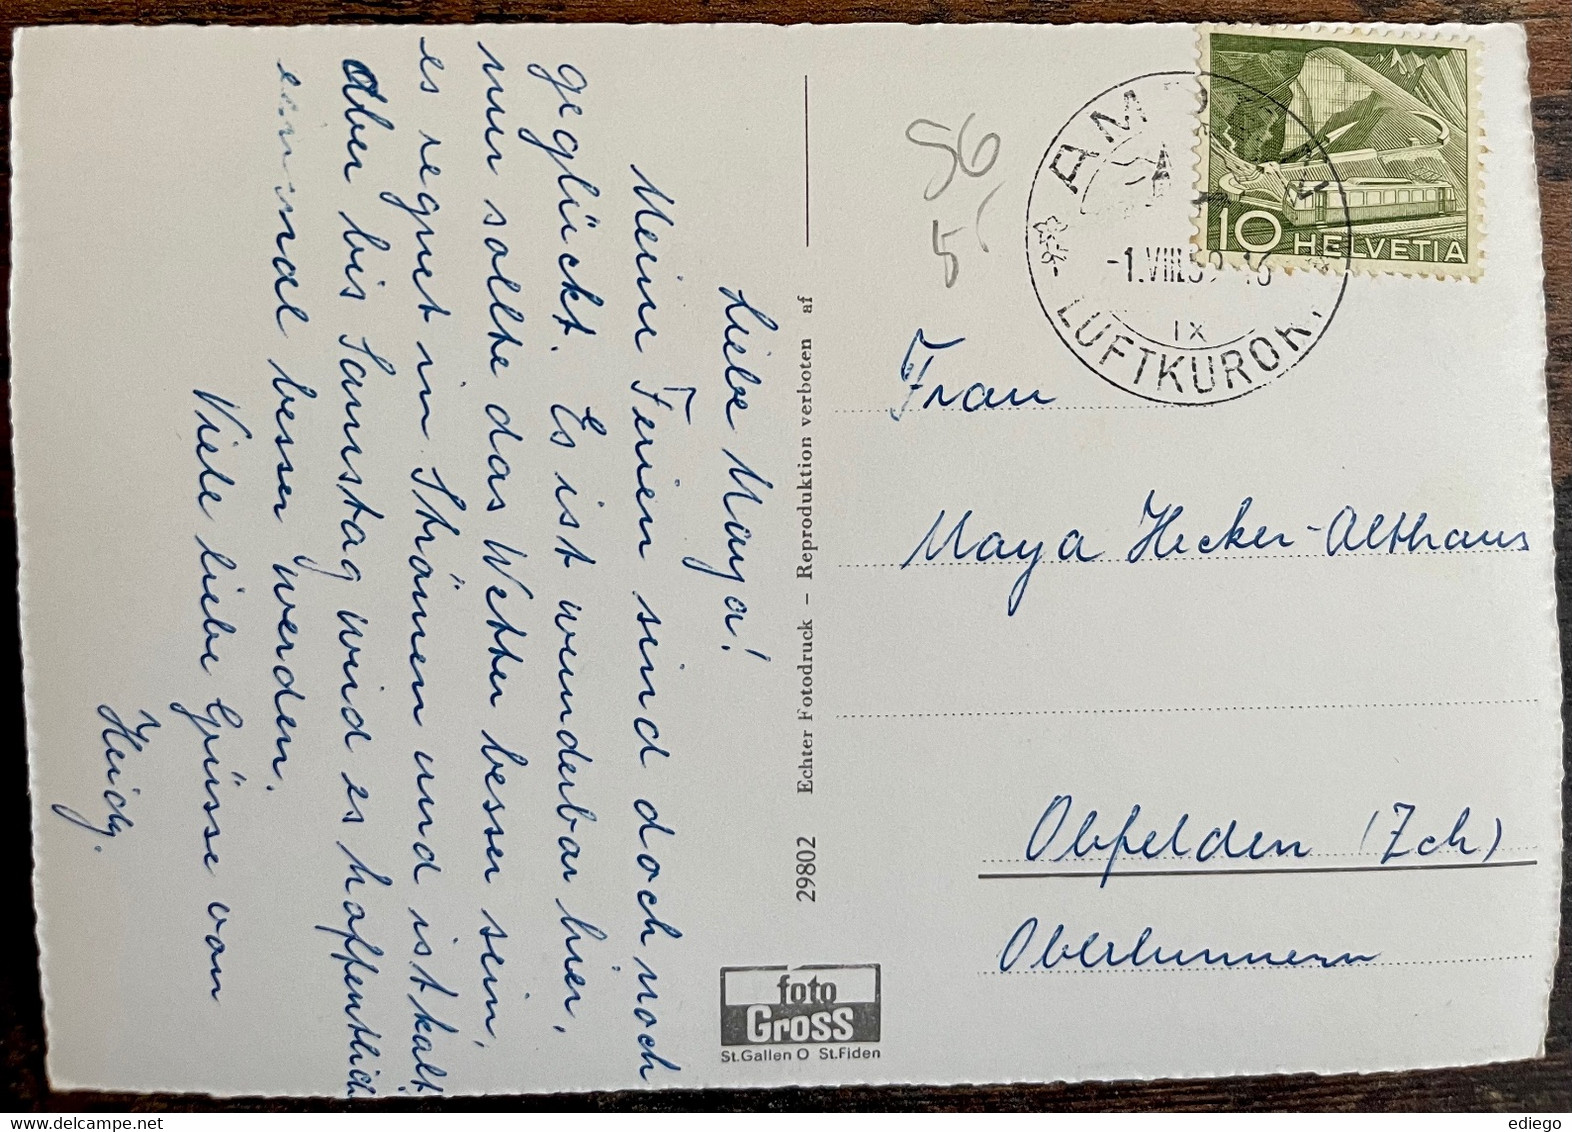 Liebe Maya!
Meine Ferien sind doch noch
geglückt. Es ist wunderbar hier,
nur sollte das Wetter besser sein,
es regnet in Strömen und ist kalt.
Aber bis Samstag wird es hoffentlich
einmal besser werden.
Viele liebe Grüsse von
Heidy.
29802 Echter Fotodruck – Reproduktion verboten af
foto
Gross
St.Gallen O St.Fiden
56
5
10 HELVETIA
-1.VIII.59 16
IX
LUFTKURORT
Frau
Maya Hecker-Althaus
Obfelden (Zch)
Oberlunnern
ediego - delcampe.net